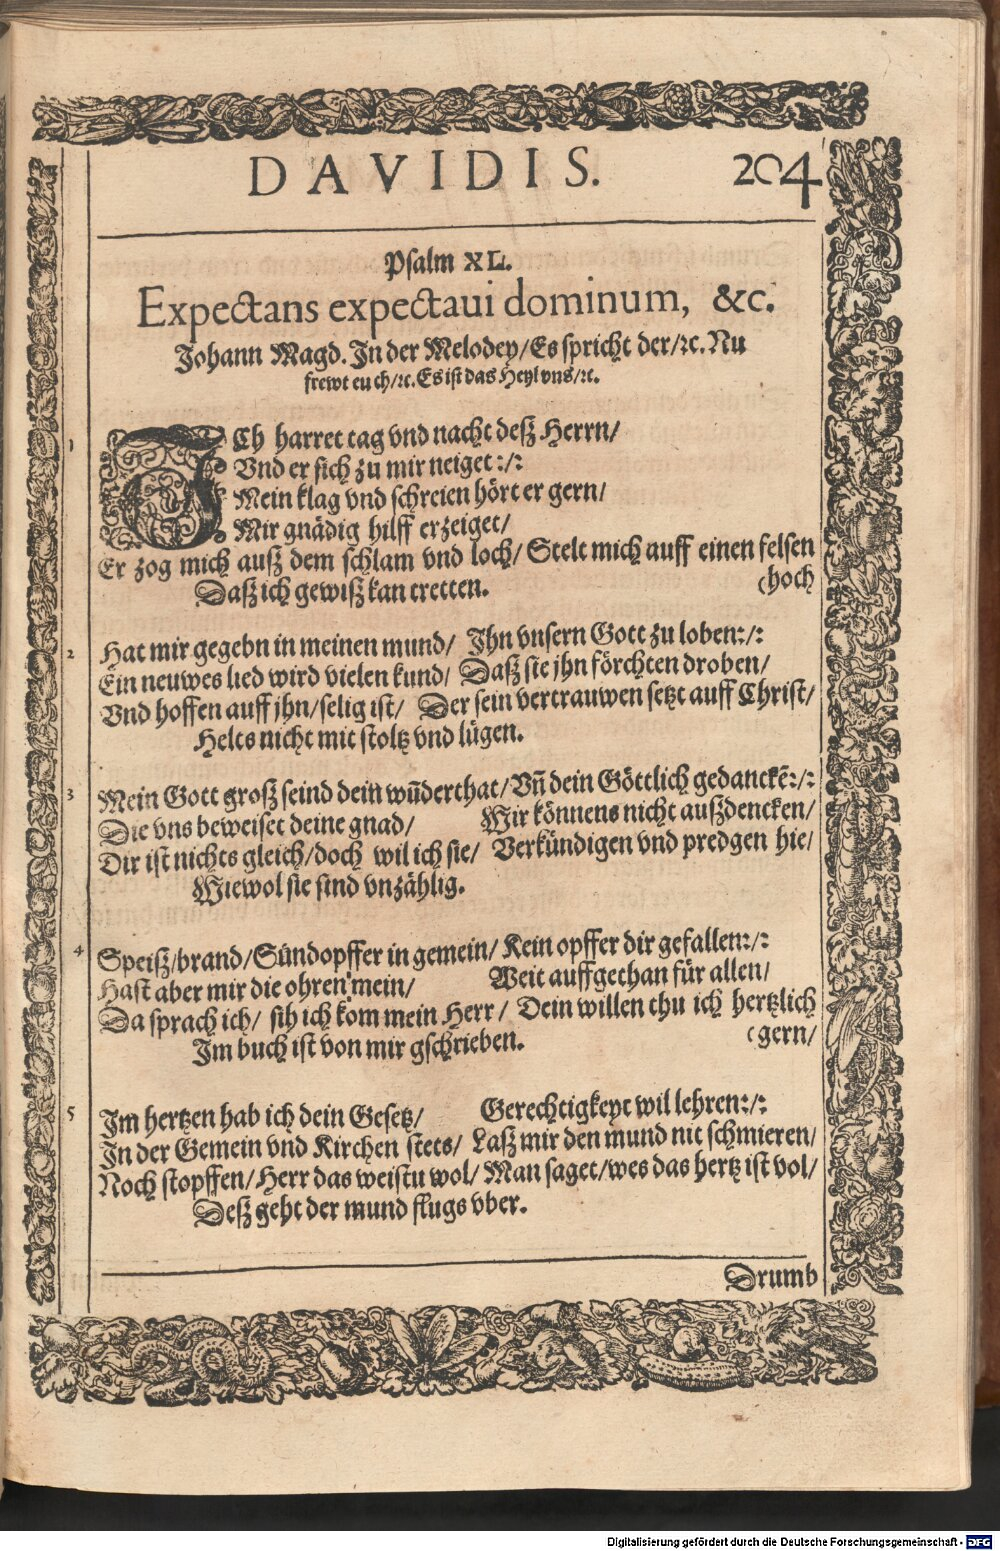 DAVIDIS. 204
Psalm XL.
Expectans expectaui dominum, &c.
Johann Magd. In der Melodey/Es spricht der/ꝛc. Nu
frewt euch/ꝛc. Es ist das Heyl vns/ꝛc.
1 ICh harret tag vnd nacht deß Herrn/
Vnd er sich zu mir neiget :/:
Mein klag vnd schreien hört er gern/
Mir gnädig hilff erzeiget/
Er zog mich auß dem schlam vnd loch/ Stelt mich auff einen felsen
Daß ich gewiß kan tretten. (hoch
2 Hat mir gegebn in meinen mund/ Ihn vnsern Gott zu loben:/:
Ein neuwes lied wird vielen kund/ Daß sie jhn förchten droben/
Vnd hoffen auff jhn/selig ist/ Der sein vertrauwen setzt auff Christ/
Helts nicht mit stoltz vnd lügen.
3 Mein Gott groß seind dein wūderthat/Vñ dein Göttlich gedanckē:/:
Die vns beweiset deine gnad/ Wir könnens nicht außdencken/
Dir ist nichts gleich/doch wil ich sie/ Verkündigen vnd predgen hie/
Wiewol sie sind vnzählig.
4 Speiß/brand/Sündopffer in gemein/ Kein opffer dir gefallen:/:
Hast aber mir die ohren mein/ Weit auffgethan für allen/
Da sprach ich/ sih ich kom mein Herr/ Dein willen thu ich hertzlich
Im buch ist von mir gschrieben. (gern/
5 Im hertzen hab ich dein Gesetz/ Gerechtigkeyt wil lehren:/:
In der Gemein vnd Kirchen stets/ Laß mir den mund nit schmieren/
Noch stopffen/Herr das weistu wol/ Man saget/wes das hertz ist vol/
Deß geht der mund flugs vber.
Drumb
Digitalisierung gefördert durch die Deutsche Forschungsgemeinschaft - DFG